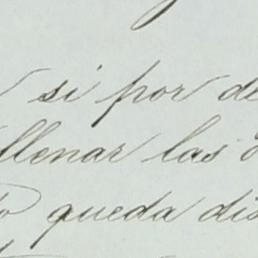 si por de
llenar las
queda dis